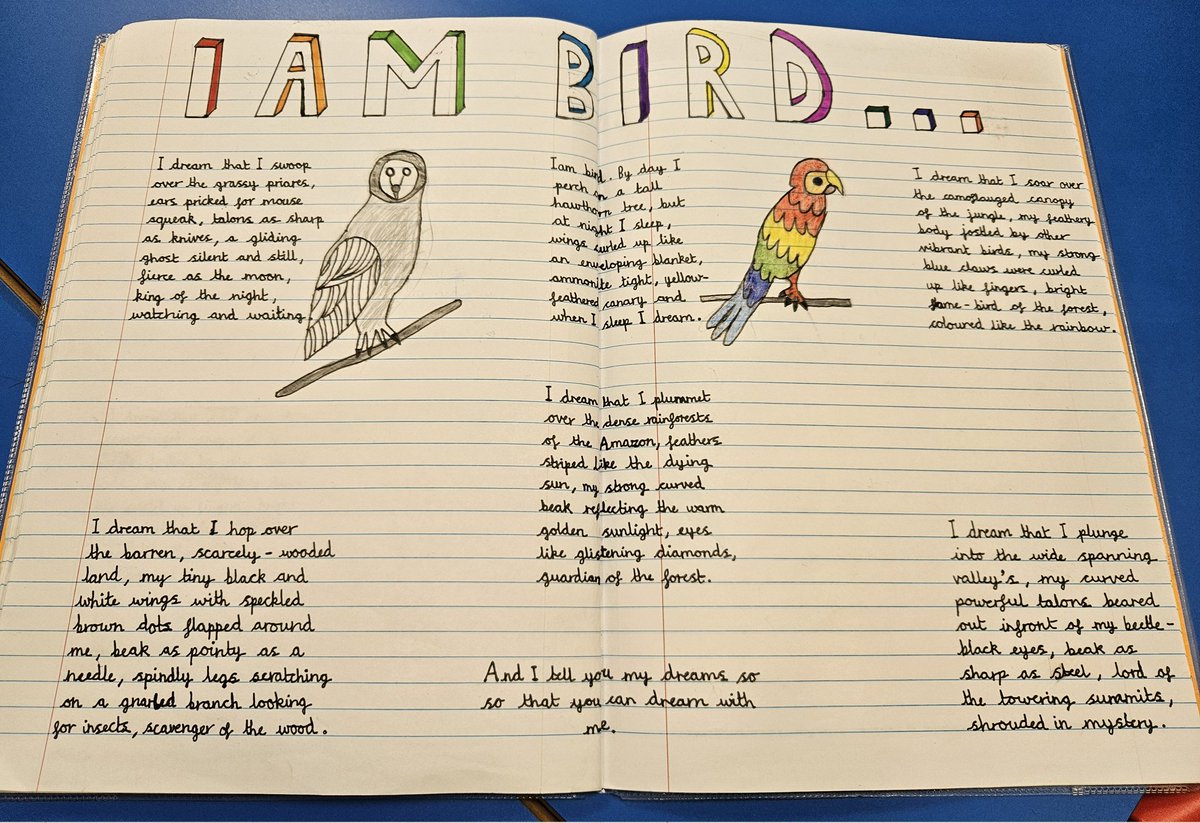 I AM BIRD...
I dream that I swoop
over the grassy priares,
ears pricked for mouse
squeak, talons as sharp
as knives, a gliding
ghost silent and still,
fierce as the moon,
king of the night,
watching and waiting
I am bird. By day I
perch on a tall
hawthorn tree, but
at night I sleep,
wings curled up like
an enveloping blanket,
ammonite tight, yellow-
feathered canary and
when I sleep I dream.
I dream that I soar over
the camoflauged canopy
of the jungle, my feathery
body jostled by other
vibrant birds, my strong
blue claws were curled
up like fingers, bright
flame-bird of the forest,
coloured like the rainbow.
I dream that I plummet
over the dense rainforests
of the Amazon, feathers
striped like the dying
sun, my strong curved
beak reflecting the warm
golden sunlight, eyes
like glistening diamonds,
guardian of the forest.
I dream that I hop over
the barren, scarcely-wooded
land, my tiny black and
white wings with speckled
brown dots flapped around
me, beak as pointy as a
needle, spindly legs scratching
on a gnarled branch looking
for insects, scavenger of the wood.
I dream that I plunge
into the wide spanning
valley's, my curved
powerful talons beared
out infront of my beetle-
black eyes, beak as
sharp as steel, lord of
the towering summits,
shrouded in mystery.
And I tell you my dreams so
so that you can dream with
me.